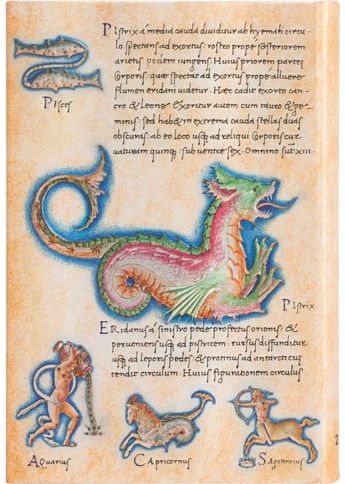 Pistrix á media cauda diuiditur ab hyemati circu-
lo spectans ad exortus. rostro prope posteriorem
arietis pedem iungens. Huius priorem partem
corporis: quæ spectat ad exortus prope alluere
flumen eridani uidetur. Hæc cadit exorto can-
cro & Leone. Exoritur autem cum tauro & ge-
minis: sed habet in extrema cauda stellas duas
obscuras: ab eo loco usq ad reliqui corporis cur
uaturam quinq: sub uentre sex. Omnino sut xiii.
Pisces
Pistrix
ERidanus á sinistro pede profectus orionis: &
perueniens usq ad pistricem: rursus diffunditur
usq ad leporis pedes: & protinus ad antarcticu
tendit circulum. Huius figurationem circulus
Aquarius
CApricornus
SAgittarius